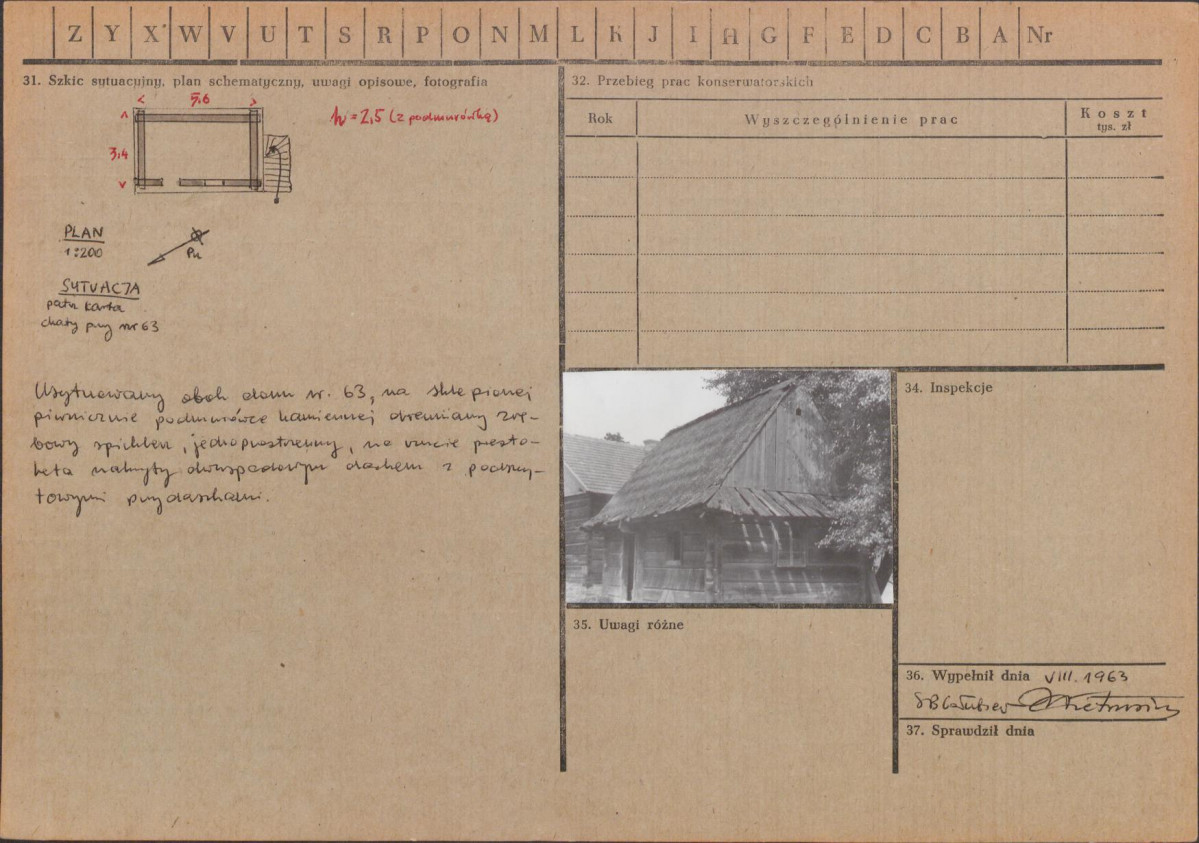 Z Y X W V U T S R P O N M L K J I H G F E D C B A Nr
31. Szkic sytuacyjny, plan schematyczny, uwagi opisowe, fotografia
5,6
h = 2,5 (z podmurówką)
3,4
PLAN
1:200
Pn
SYTUACJA
patrz karta
chaty przy nr 63
Usytuowany obok domu nr. 63, na sklepionej
piwnicznie podmurówce kamiennej drewniany zrę-
bowy spichlerz, jednoprzestrzenny, na rzucie prosto-
kąta nakryty dwuspadowym dachem z podszy-
towymi przydaszkami.
32. Przebieg prac konserwatorskich
Rok
Wyszczególnienie prac
Koszt
tys. zł
34. Inspekcje
35. Uwagi różne
36. Wypełnił dnia VIII. 1963
37. Sprawdził dnia